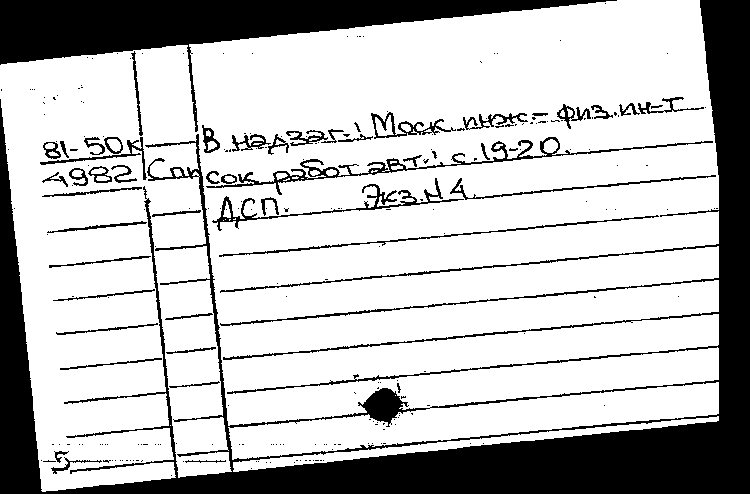 81-50к В надзаг.: Моск. инж.- физ. ин-т
4982 Список работ авт.: с. 19-20.
ДСП. Экз. N 4.
5